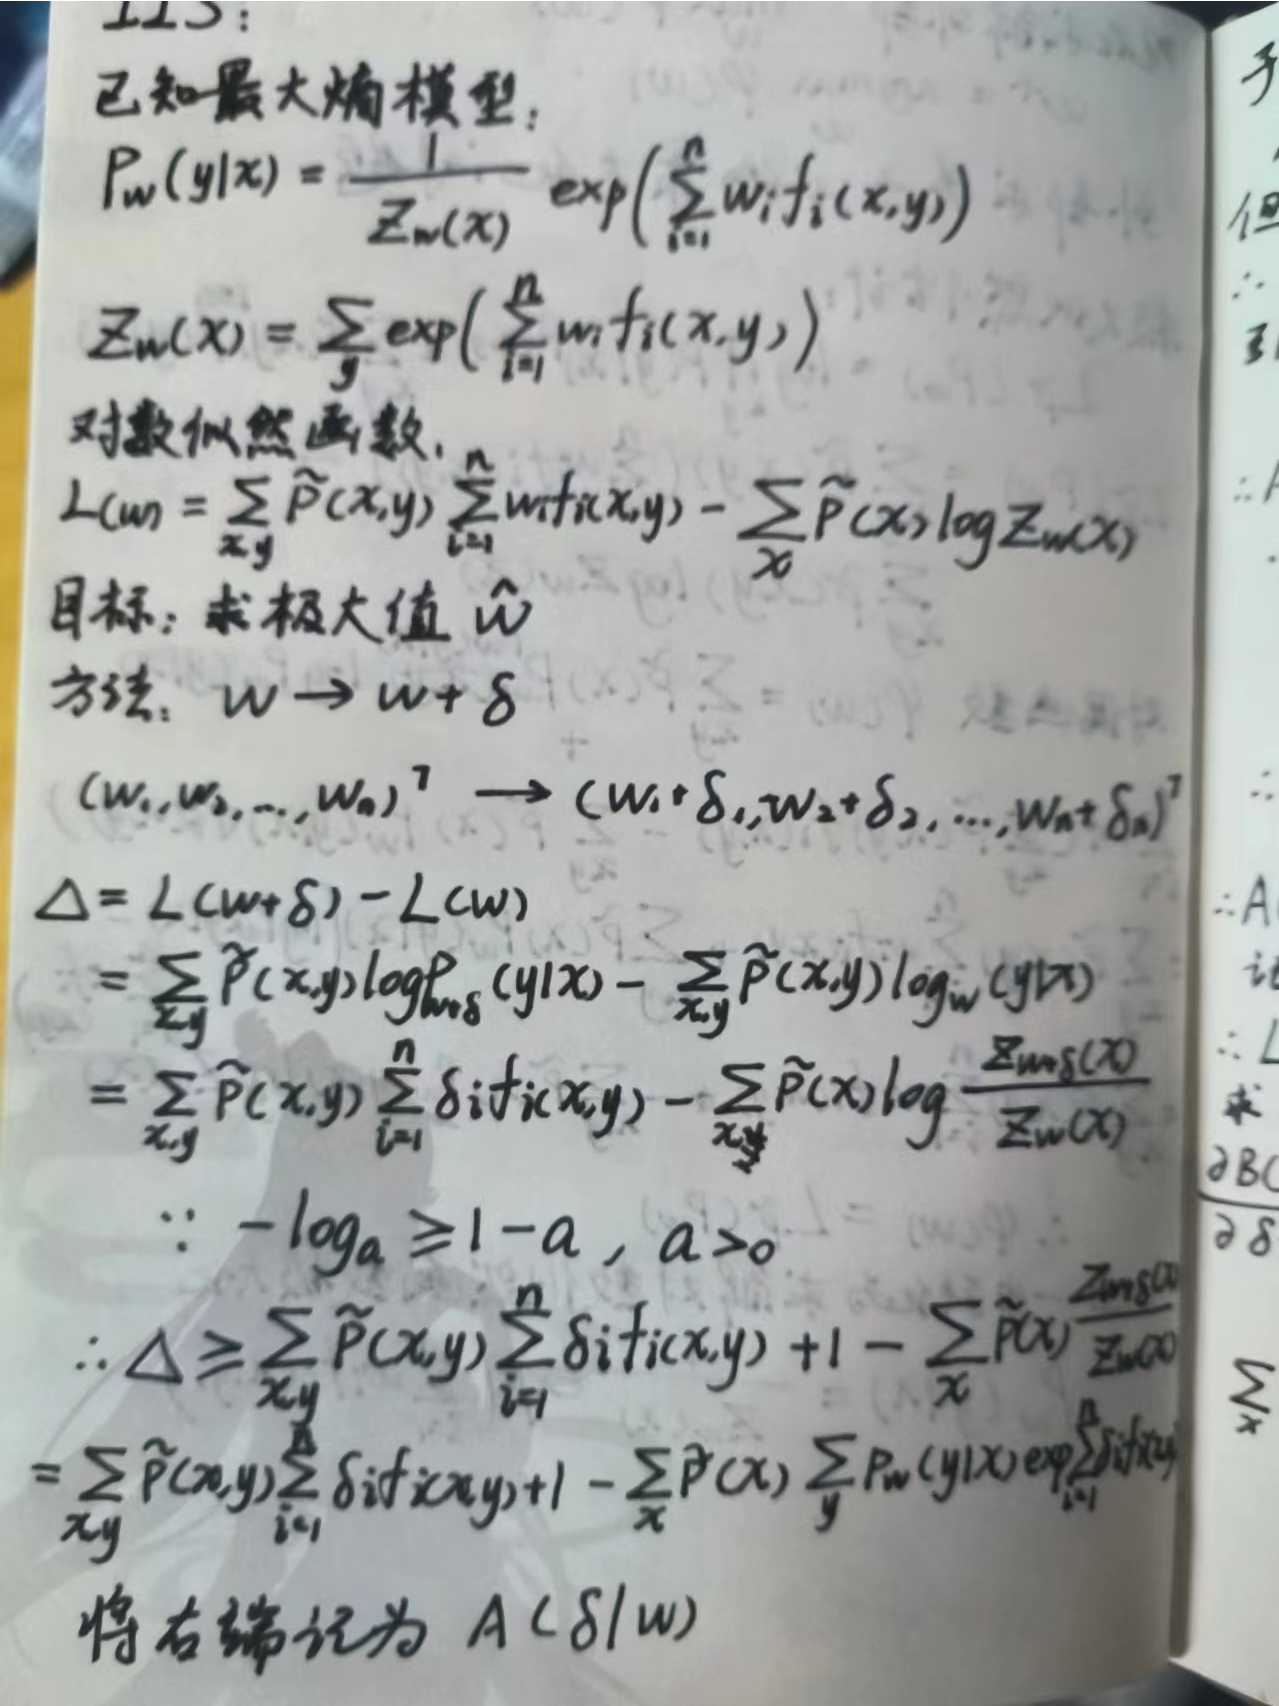 IIS:
已知最大熵模型:
P_w(y|x) = 1/Z_w(x) exp(∑_{i=1}^{n} w_i f_i(x,y))
Z_w(x) = ∑_y exp(∑_{i=1}^{n} w_i f_i(x,y))
对数似然函数,
L(w) = ∑_{x,y} P̃(x,y) ∑_{i=1}^{n} w_i f_i(x,y) - ∑_x P̃(x) log Z_w(x)
目标: 求极大值 ŵ
方法: w → w + δ
(w_1, w_2, ..., w_n)^T → (w_1+δ_1, w_2+δ_2, ..., w_n+δ_n)^T
△ = L(w+δ) - L(w)
= ∑_{x,y} P̃(x,y) log P_{w+δ}(y|x) - ∑_{x,y} P̃(x,y) log_w(y|x)
= ∑_{x,y} P̃(x,y) ∑_{i=1}^{n} δ_i f_i(x,y) - ∑_x P̃(x) log Z_{w+δ}(x)/Z_w(x)
∵ -log a ≥ 1-a, a>0
∴ △ ≥ ∑_{x,y} P̃(x,y) ∑_{i=1}^{n} δ_i f_i(x,y) + 1 - ∑_x P̃(x) Z_{w+δ}(x)/Z_w(x)
= ∑_{x,y} P̃(x,y) ∑_{i=1}^{n} δ_i f_i(x,y) + 1 - ∑_x P̃(x) ∑_y P_w(y|x) exp ∑_{i=1}^{n} δ_i f_i(x,y)
将右端记为 A(δ|w)
于
但
∴
∴A
∴
∴A
记
∴L
求
∂B(
∂δ
∑_x